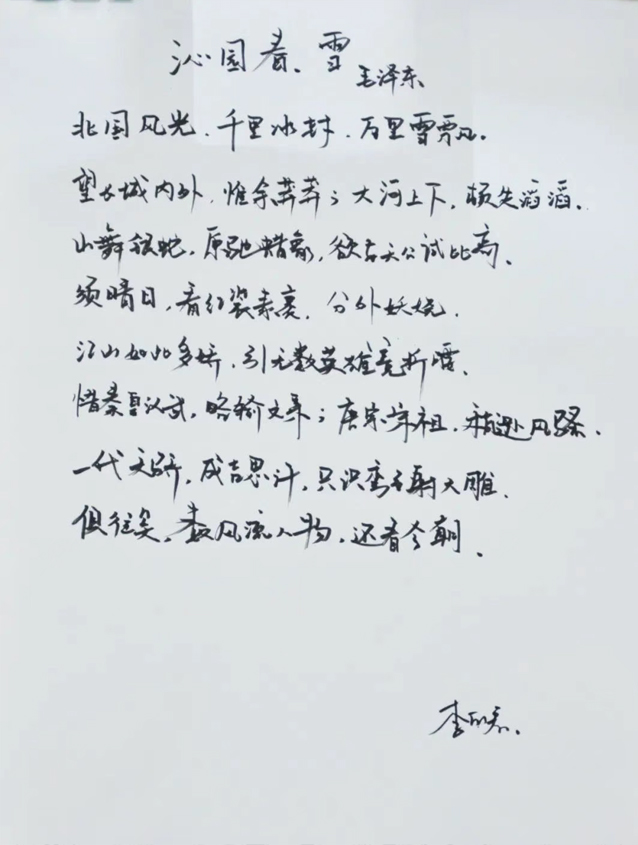 沁园春、雪
毛泽东
北国风光、千里冰封、万里雪飘。
望长城内外，惟余莽莽；大河上下，顿失滔滔。
山舞银蛇，原驰蜡象，欲与天公试比高。
须晴日，看红装素裹，分外妖娆。
江山如此多娇，引无数英雄竞折腰。
惜秦皇汉武，略输文采；唐宗宋祖，稍逊风骚。
一代天骄，成吉思汗，只识弯弓射大雕。
俱往矣，数风流人物，还看今朝。
李